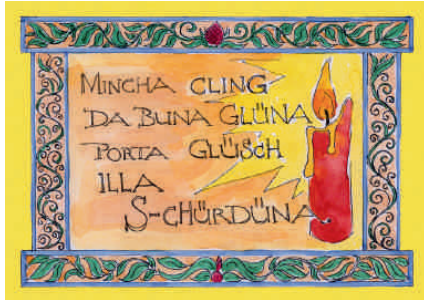 MINCHA CLING
DA BUNA GLÜNA
PORTA GLÜSCH
ILLA
S-CHÜRDÜNA